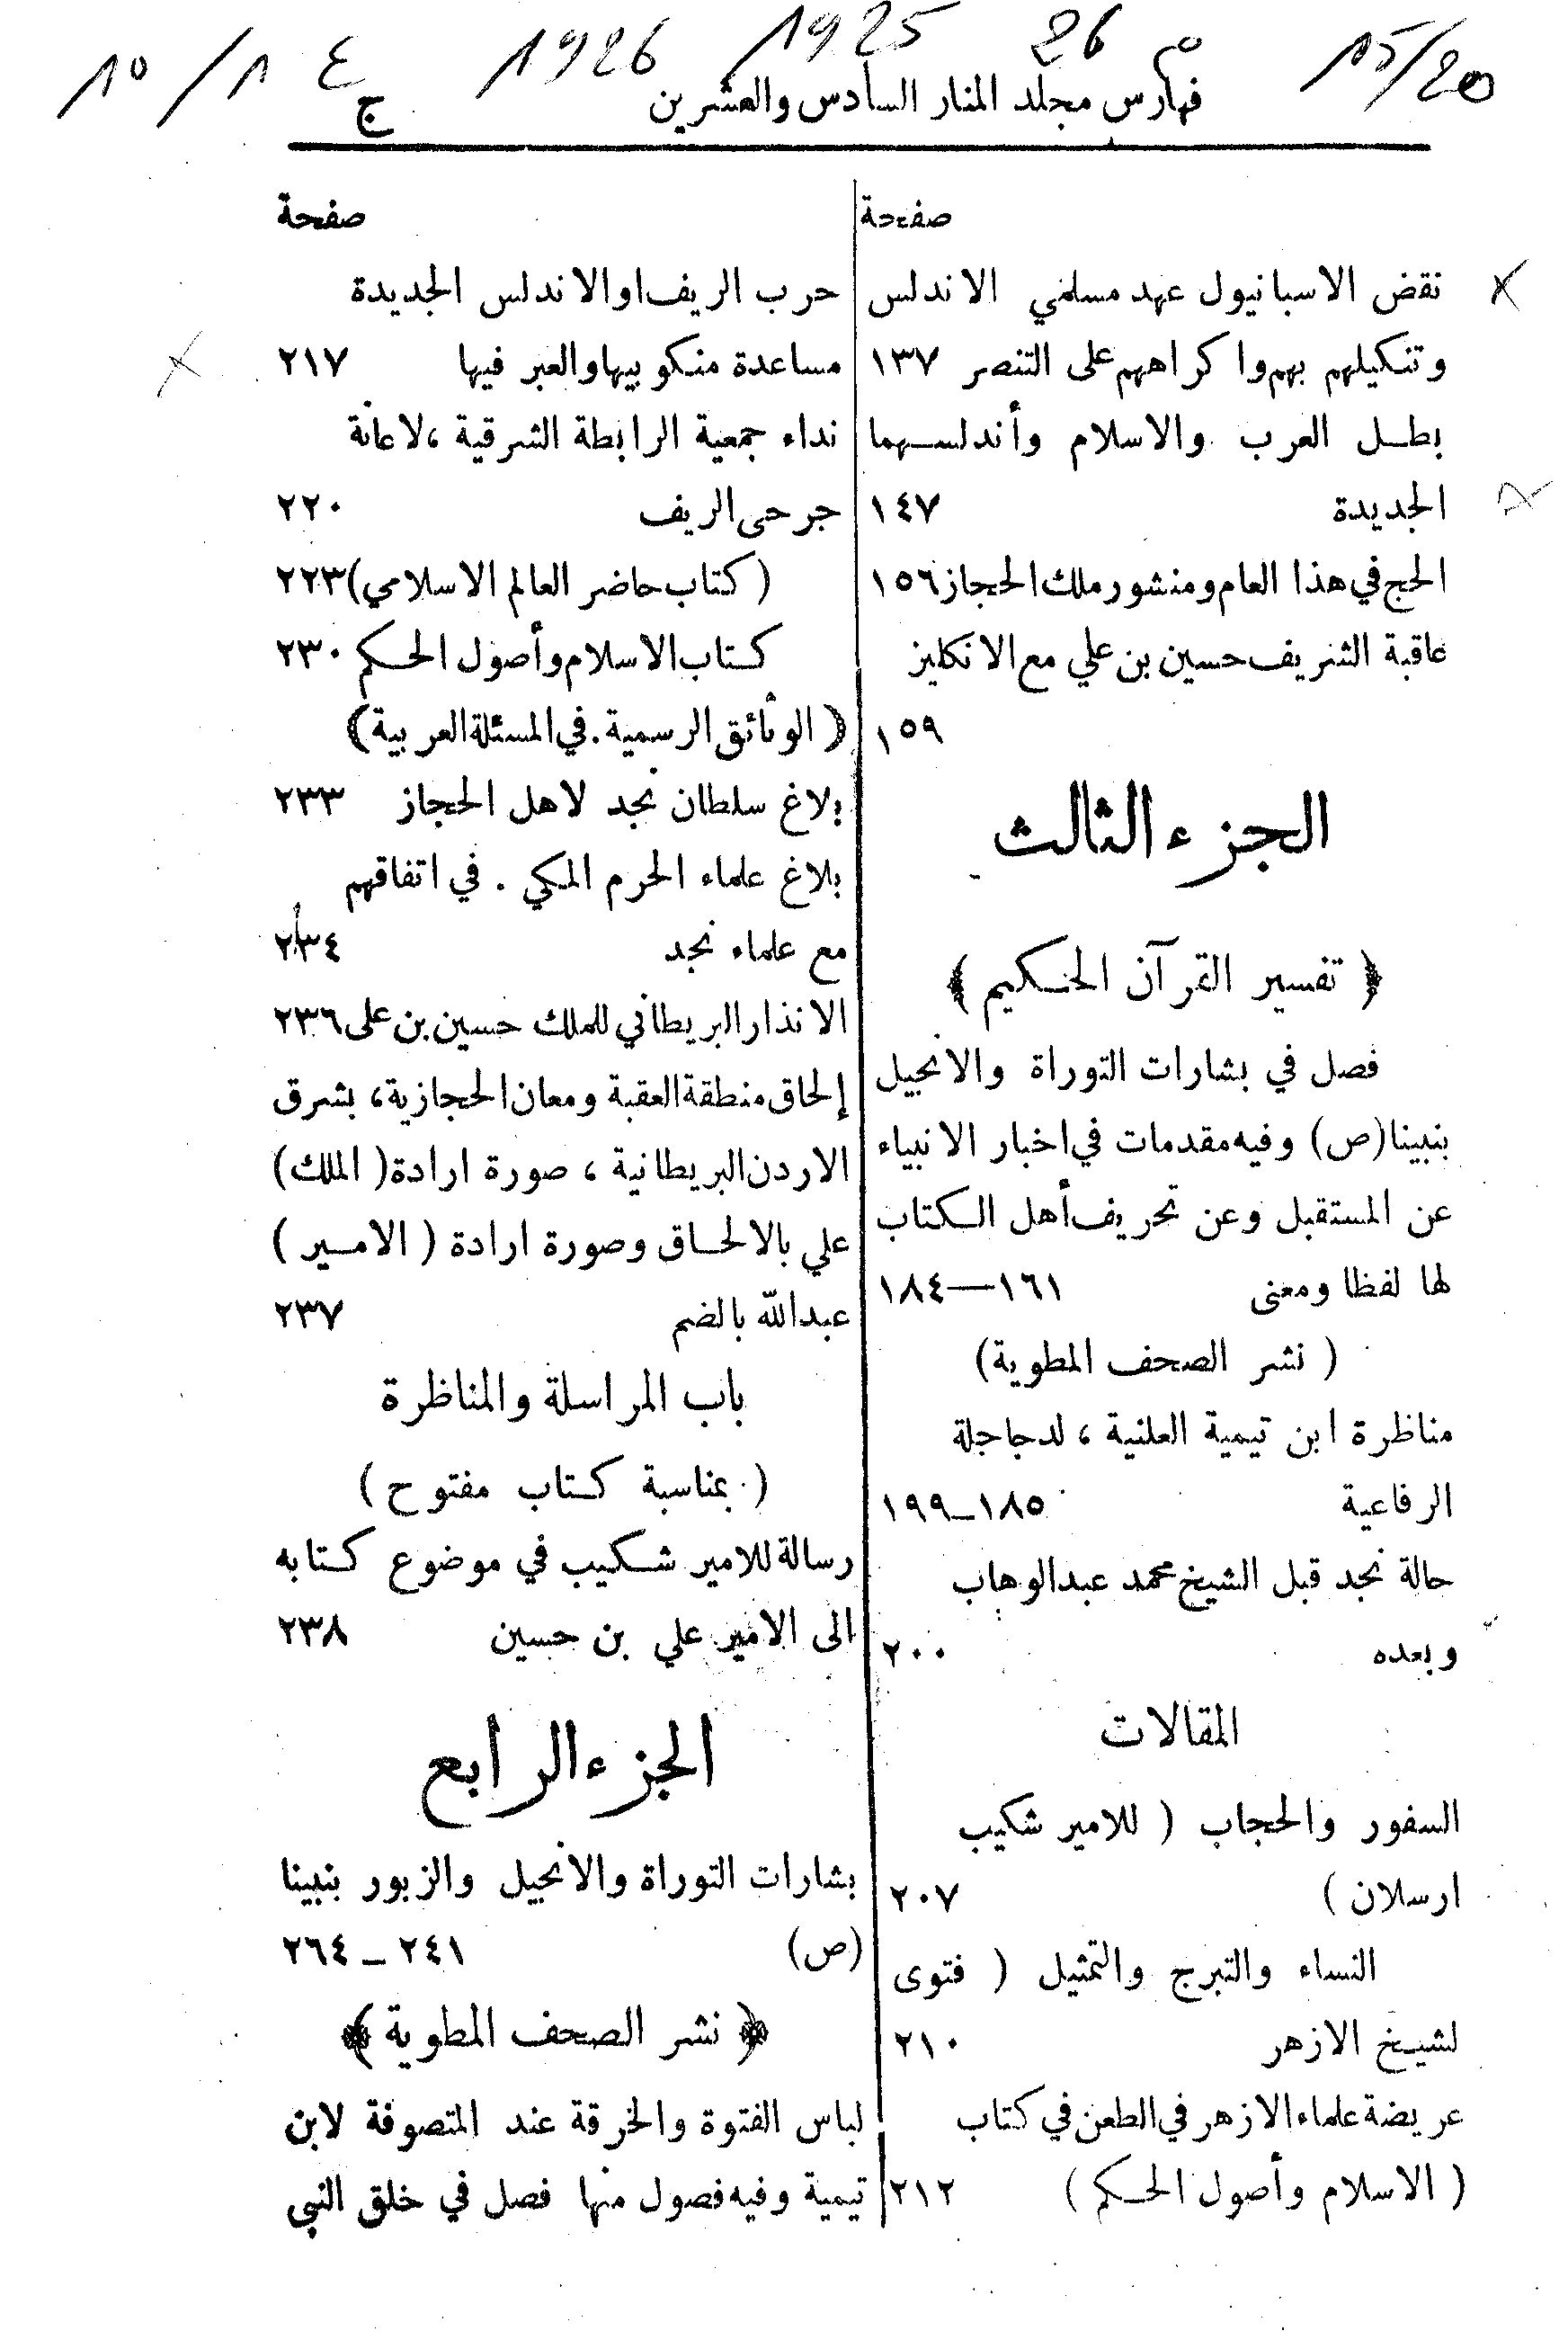 15/20 م 26 1925 1926 ج ٤ ١٠/١
فهارس مجلد المنار السادس والعشرين
صفحة
نقض الاسبانيول عهد مسلمي الاندلس
وتنكيلهم بهم واكراههم على التنصر ١٣٧
بطل العرب والاسلام وأندلسهما
الجديدة ١٤٧
الحج في هذا العام ومنشور ملك الحجاز ١٥٦
عاقبة الشريف حسين بن علي مع الانكليز
١٥٩
الجزء الثالث
﴿ تفسير القرآن الحكيم ﴾
فصل في بشارات التوراة والانجيل
بنبينا (ص) وفيه مقدمات في اخبار الانبياء
عن المستقبل وعن تحريف أهل الكتاب
لها لفظا ومعنى ١٦١—١٨٤
( نشر الصحف المطوية )
مناظرة ابن تيمية العلنية ، لدجاجلة
الرفاعية ١٨٥ـ١٩٩
حالة نجد قبل الشيخ محمد عبدالوهاب
وبعده ٢٠٠
المقالات
السفور والحجاب ( للامير شكيب
ارسلان ) ٢٠٧
النساء والتبرج والتمثيل ( فتوى
لشيخ الازهر ٢١٠
عريضة علماء الازهر في الطعن في كتاب
( الاسلام وأصول الحكم ) ٢١٢
صفحة
حرب الريف او الاندلس الجديدة
مساعدة منكوبيها والعبر فيها ٢١٧
نداء جمعية الرابطة الشرقية ، لاعانة
جرحى الريف ٢٢٠
( كتاب حاضر العالم الاسلامي ) ٢٢٣
كتاب الاسلام وأصول الحكم ٢٣٠
﴿ الوثائق الرسمية . في المسئلة العربية ﴾
بلاغ سلطان نجد لاهل الحجاز ٢٣٣
بلاغ علماء الحرم المكي . في اتفاقهم
مع علماء نجد ٢٣٤
الانذار البريطاني للملك حسين بن على ٢٣٦
إلحاق منطقة العقبة ومعان الحجازية ، بشرق
الاردن البريطانية ، صورة ارادة ( الملك )
علي بالالحاق وصورة ارادة ( الامير )
عبدالله بالضم ٢٣٧
باب المراسلة والمناظرة
( بمناسبة كتاب مفتوح )
رسالة للامير شكيب في موضوع كتابه
الى الامير علي بن حسين ٢٣٨
الجزء الرابع
بشارات التوراة والانجيل والزبور بنبينا
(ص) ٢٤١ ـ ٢٦٤
﴿ نشر الصحف المطوية ﴾
لباس الفتوة والخرقة عند المتصوفة لابن
تيمية وفيه فصول منها فصل في خلق النبي